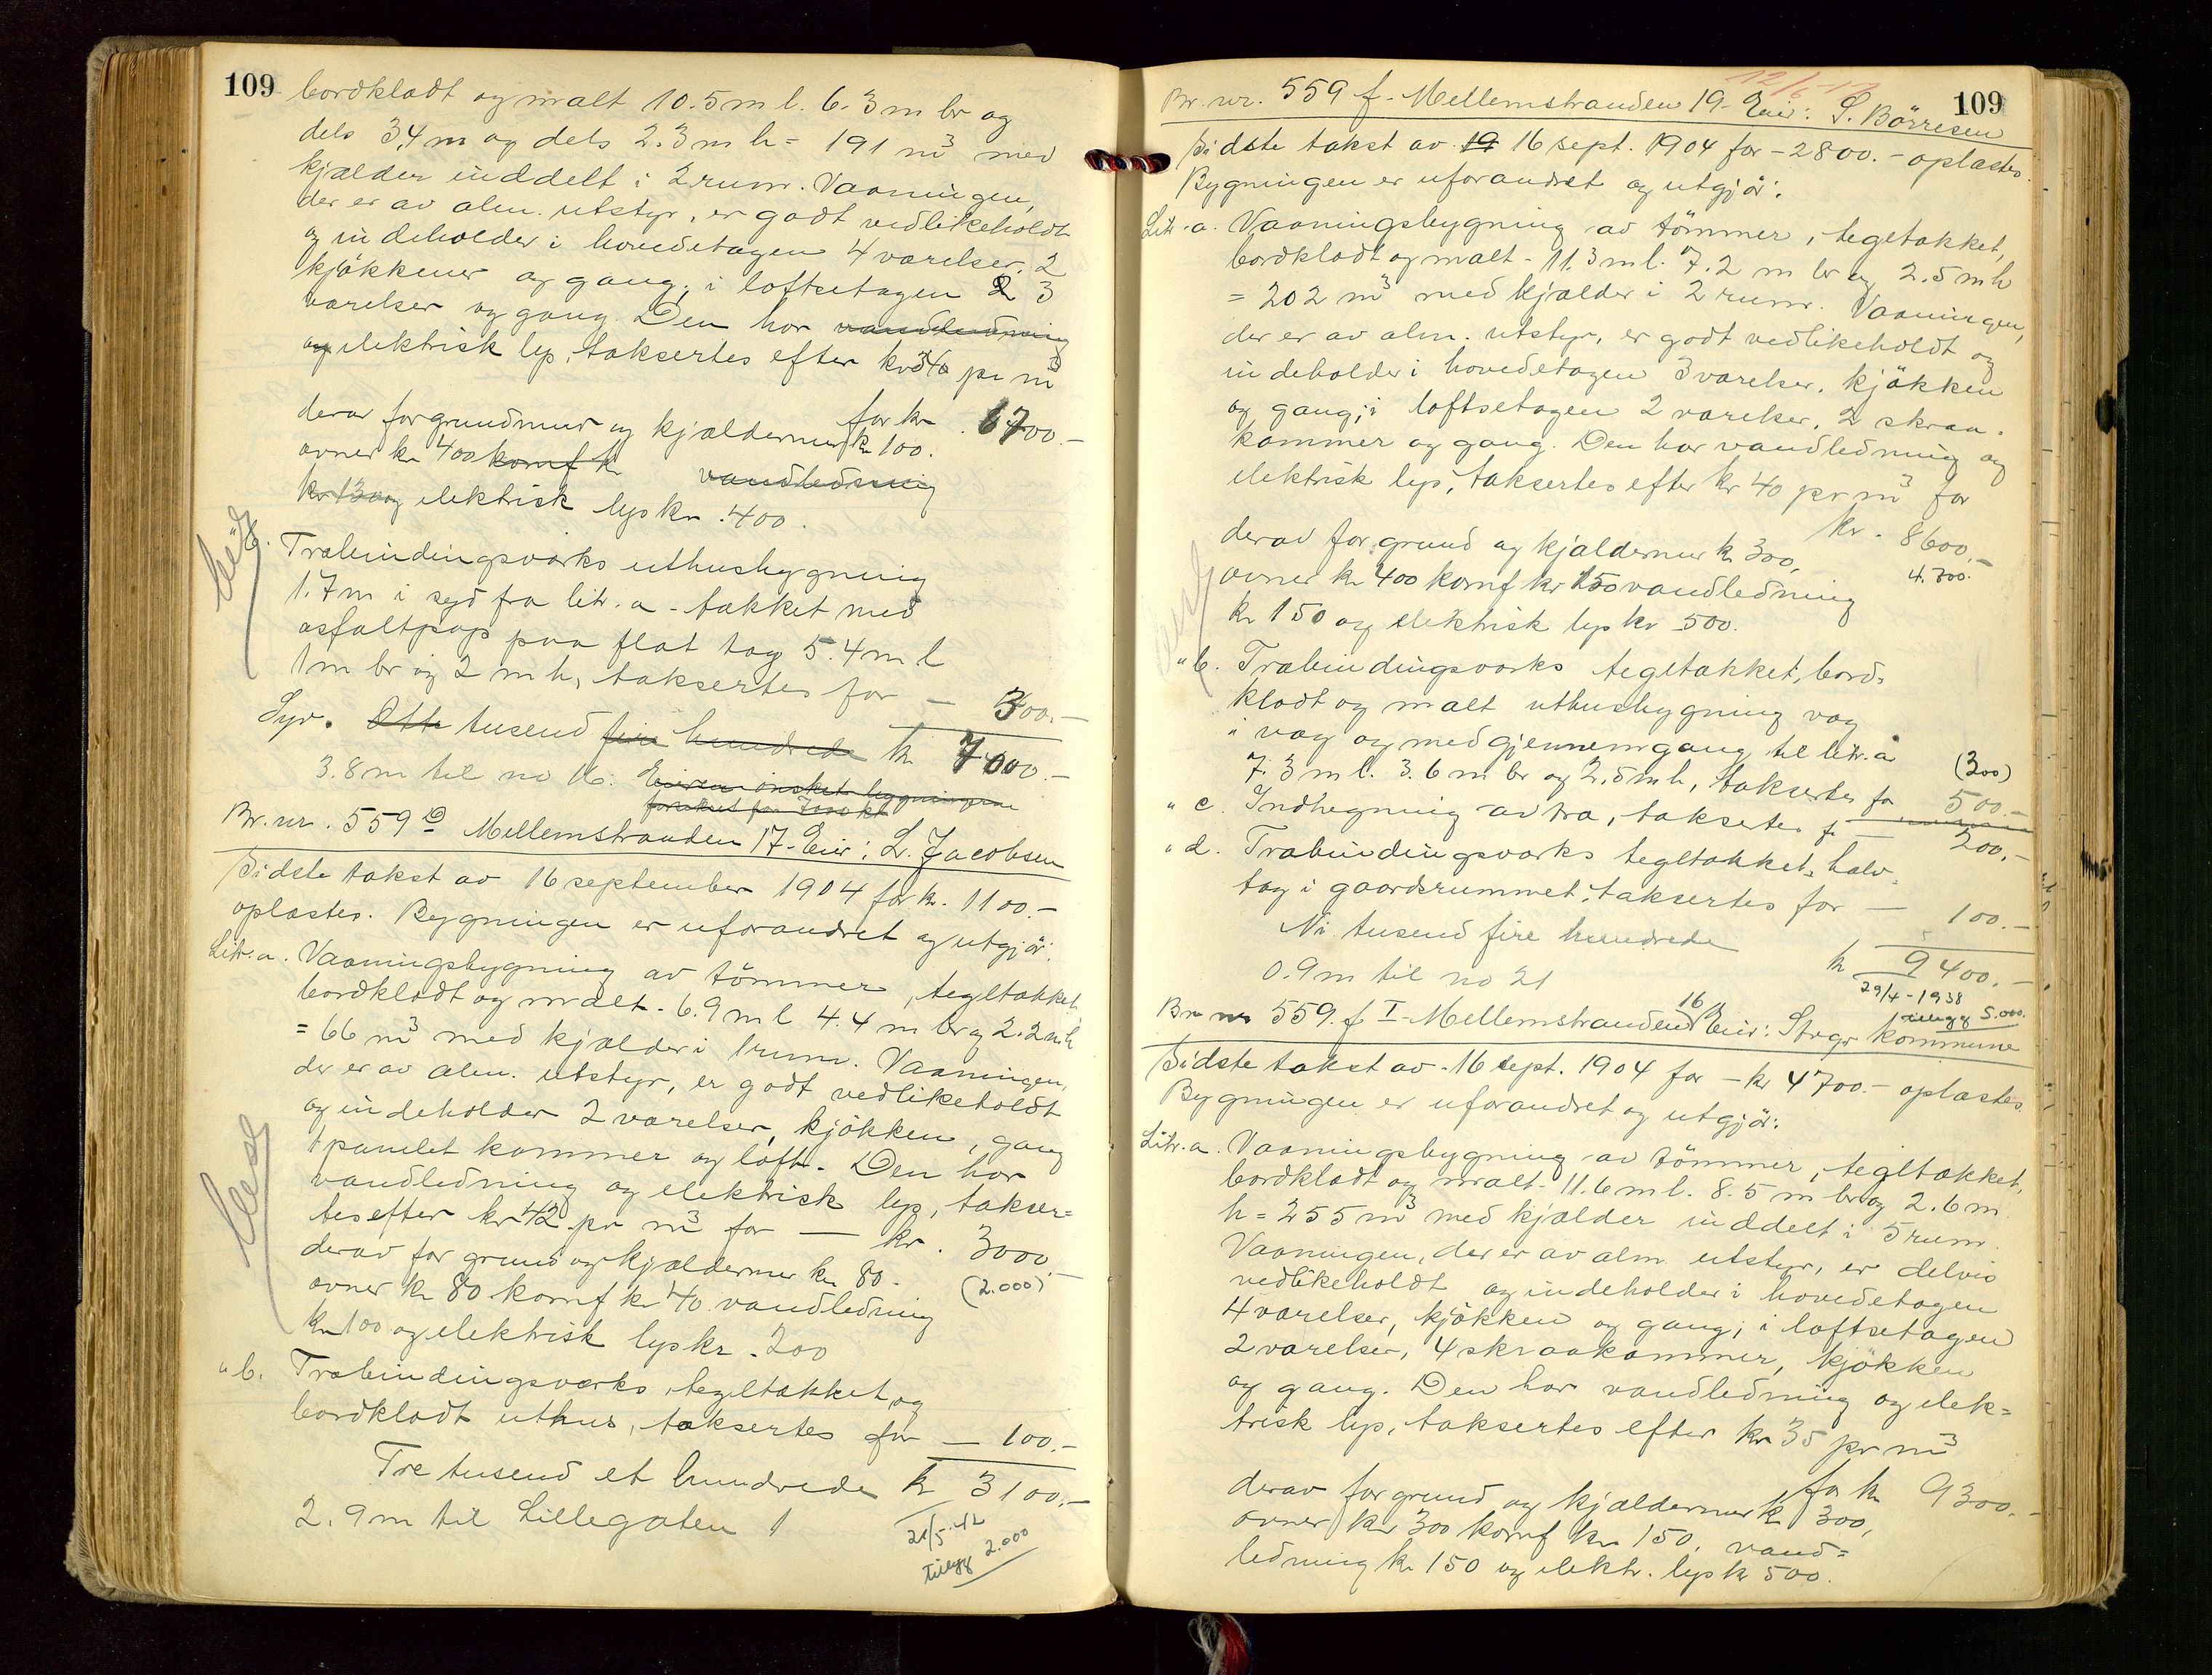 109
bordklædt og malt 10.5 m l. 6.3 m br og
dels 3,4 m og dels 2.3 m h = 191 m³ med
kjælder inddelt i 2 rum. Vaaningen,
der er av alm. utstyr, er godt vedlikeholdt
og indeholder i hovedetagen 4 værelser, 2
kjøkkener og gang; i loftsetagen 2 3
værelser og gang. Den har vandledning
og elektrisk lys, taksertes efter kr 34 pr m³
for kr. 6700.-
derav for grundmur og kjældermur kr 100.
ovner kr 400 komf kr vandledning
kr 130 og elektrisk lys kr. 400.
b. Træbindingsværks uthusbygning
1.7 m i syd fra litr. a - tækket med
asfaltpap paa flat tag 5.4 m l
1 m br og 2 m h, taksertes for — 300.-
Syv. Otte tusend fire hundrede kr 7000.-
3.8 m til no 16. Eieren ønsket bygningerne
forsikret for 7000 kr
Br. nr. 559 e Mellemstranden 17 - Eier: L. Jacobsen
Sidste takst av 16 september 1904 for kr. 1100.-
oplæstes. Bygningen er uforandret og utgjør:
Litr. a. Vaaningsbygning av tømmer, tegltækket,
bordklædt og malt - 6.9 m l 4.4 m br og 2.2 m h
= 66 m³ med kjælder i 1 rum. Vaaningen,
der er av alm. utstyr, er godt vedlikeholdt
og indeholder 2 værelser, kjøkken, gang
1 panelet kammer og loft. Den har
vandledning og elektrisk lys, takser=
tes efter kr 42 pr m³ for — kr. 3000.-
derav for grund og kjældermur kr 80. (2.000)
ovner kr 80 komf kr 40 vandledning
kr 100 og elektrisk lys kr. 200
" b. Træbindingsværks, tegltækket og
bordklædt uthus, taksertes for — 100.-
Tre tusend et hundrede kr 3100.-
2.9 m til Lillegaten 1
21/5-42
tillegg 2.000
109
Br. nr. 559 f - Mellemstranden 19 - Eier: S. Børresen
Sidste takst av 19 16 sept. 1904 for - 2800.- oplæstes.
Bygningen er uforandret og utgjør:
Litr. a. Vaaningsbygning av tømmer, tegltækket,
bordklædt og malt - 11.3 m l. 7.2 m br og 2.5 m h
= 202 m³ med kjælder i 2 rum. Vaaningen,
der er av alm. utstyr, er godt vedlikeholdt og
indeholder i hovedetagen 3 værelser, kjøkken
og gang; i loftsetagen 2 værelser, 2 skraa=
kammer og gang. Den har vandledning og
elektrisk lys, taksertes efter kr 40 pr m³ for
kr. 8600.-
derav for grund og kjældermur kr 300, 4.300.-
ovner kr 400 komf kr 150 vandledning
kr 150 og elektrisk lys kr 500.
" b. Træbindingsværks tegltækket, bord=
klædt og malt uthusbygning væg
i væg og med gjennemgang til litr. a
7.3 m l. 3.6 m br og 2.5 m h, taksertes for 500.- (300)
" c. Indhegning av træ, taksertes f. — 200.-
" d. Træbindingsværks tegltækket, halv=
tag i gaardsrummet, taksertes for — 100.-
Ni tusend fire hundrede kr 9400.-
0.9 m til no 21
29/4-1938
tillegg 5.000.
Br nr 559. f I - Mellemstranden 16 Eier: Stvgr kommune
Sidste takst av 16 sept. 1904 for - kr 4700.- oplæstes.
Bygningen er uforandret og utgjør:
Litr. a. Vaaningsbygning av tømmer, tegltækket,
bordklædt og malt - 11.6 m l. 8.5 m br og 2.6 m
h = 255 m³ med kjælder inddelt i 5 rum.
Vaaningen, der er av alm utstyr, er delvis
vedlikeholdt og indeholder i hovedetagen
4 værelser, kjøkken og gang; i loftsetagen
2 værelser, 4 skraakammer, kjøkken
og gang. Den har vandledning og elek=
trisk lys, taksertes efter kr 35 pr m³
for kr 9300.-
derav for grund og kjældermur kr 300,
ovner kr 300 komf kr 150, vand=
ledning kr 150 og elektr. lys kr 500.